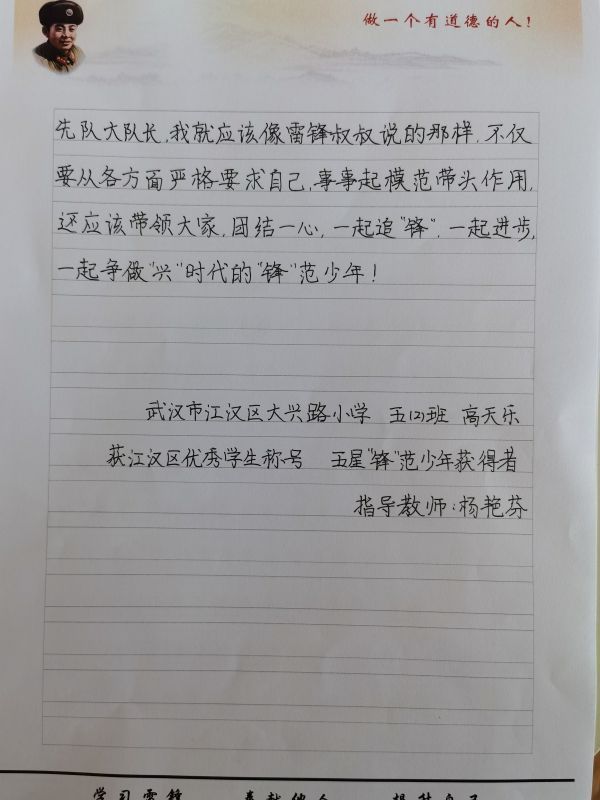 做一个有道德的人！
先队大队长，我就应该像雷锋叔叔说的那样，不仅
要从各方面严格要求自己，事事起模范带头作用，
还应该带领大家，团结一心，一起追“锋”，一起进步，
一起争做“兴”时代的“锋”范少年！
武汉市江汉区大兴路小学 五(2)班 高天乐
获江汉区优秀学生称号 五星“锋”范少年获得者
指导教师：杨艳芬
学习雷锋 奉献他人 提升自己